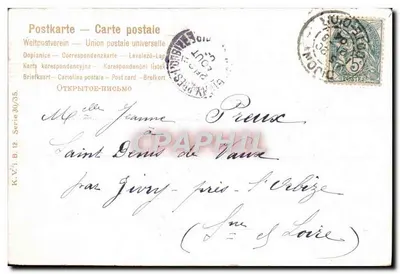 Postkarte - Carte postale
Weltpostverein - Union postale universelle
Dopisnice - Correspondenzkarte - Levelező-Lap
Karta korespondencyjna - Korespondenční lístek
Briefkaart - Cartolina postale - Post card - Brefkort
ОТКРЫТОЕ-ПИСЬМО
DIJON
5
K. V. i. B. 12. Serie 30/05.
Melle Jeanne Preux
à
Saint Denis de Vaux
CARTHAPHILA
par Givry-près-St Orbize
(Sne et Loire)